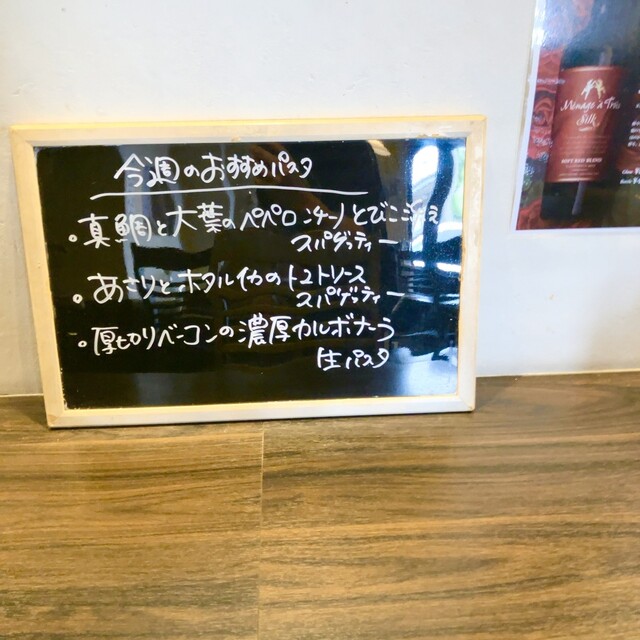 今週のおすすめパスタ
。真鯛と大葉のペペロンチーノとびこ
スパゲッティー
。あさりとホタルイカのトマトソース
スパゲッティー
。厚切りベーコンの濃厚カルボナーラ
生パスタ
Ménage à Trois
Silk
SOFT RED BLEND